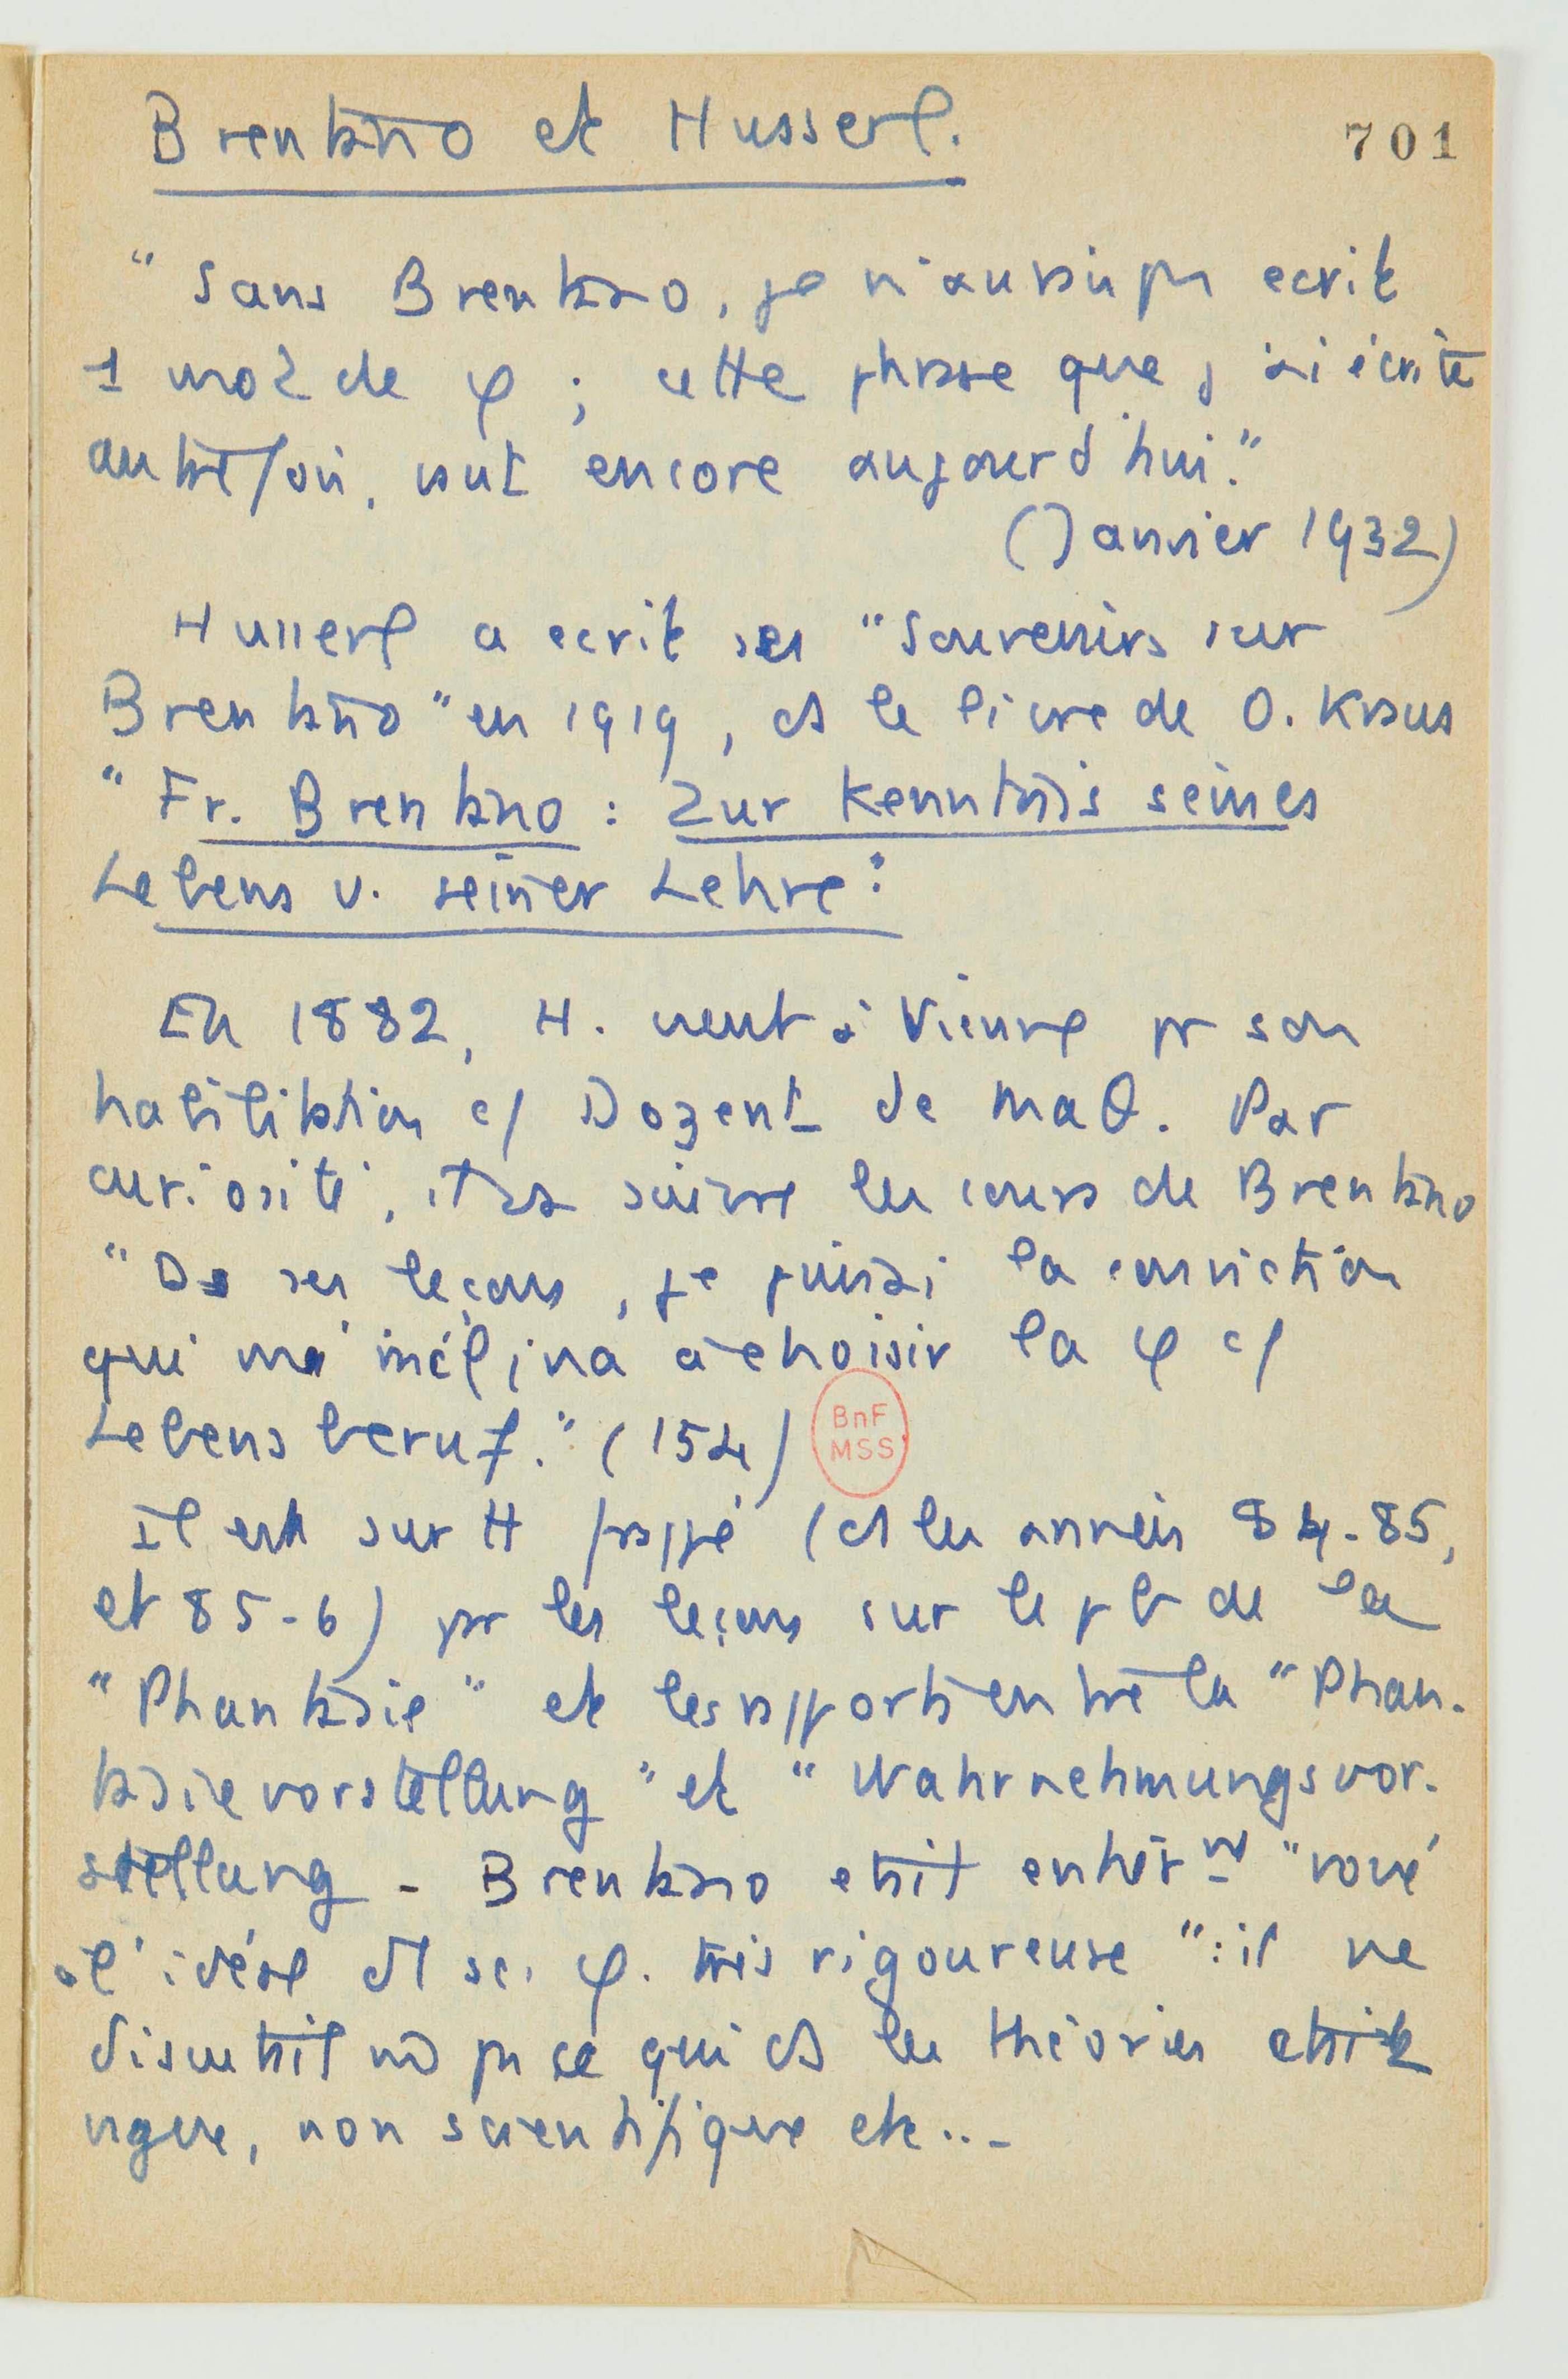 Brentano et Husserl.
701
"Sans Brentano, je n'aurais pas ecrit
1 mot de φ ; cette phrase que j'ai écrite
autrefois, vaut encore aujourd'hui."
(Janvier 1932)
Husserl a ecrit ses "Souvenirs sur
Brentano" en 1919, ds le livre de O. Kraus
"Fr. Brentano : Zur Kenntnis seines
Lebens u. seiner Lehre :
En 1882, H. vient à Vienne pr son
habilitation c/ Dozent de maθ. Par
curiosité, il va suivre les cours de Brentano
"De ses leçons, je puisai la conviction
qui m'inclina à choisir la φ c/
Lebensberuf." (154)
BnF
MSS
Il est surtt frappé (ds les années 84-85,
et 85-6) par les leçons sur le pb de la
"Phantasie" et les rapports entre la "Phan-
tasievorstellung" et "Wahrnehmungsvor-
stellung - Brentano était entièrmt "voué
à l'idéal d'1 sc. φ. très rigoureuse" : il ne
discutait pas ce qui ds les théories était
vague, non scientifique etc...